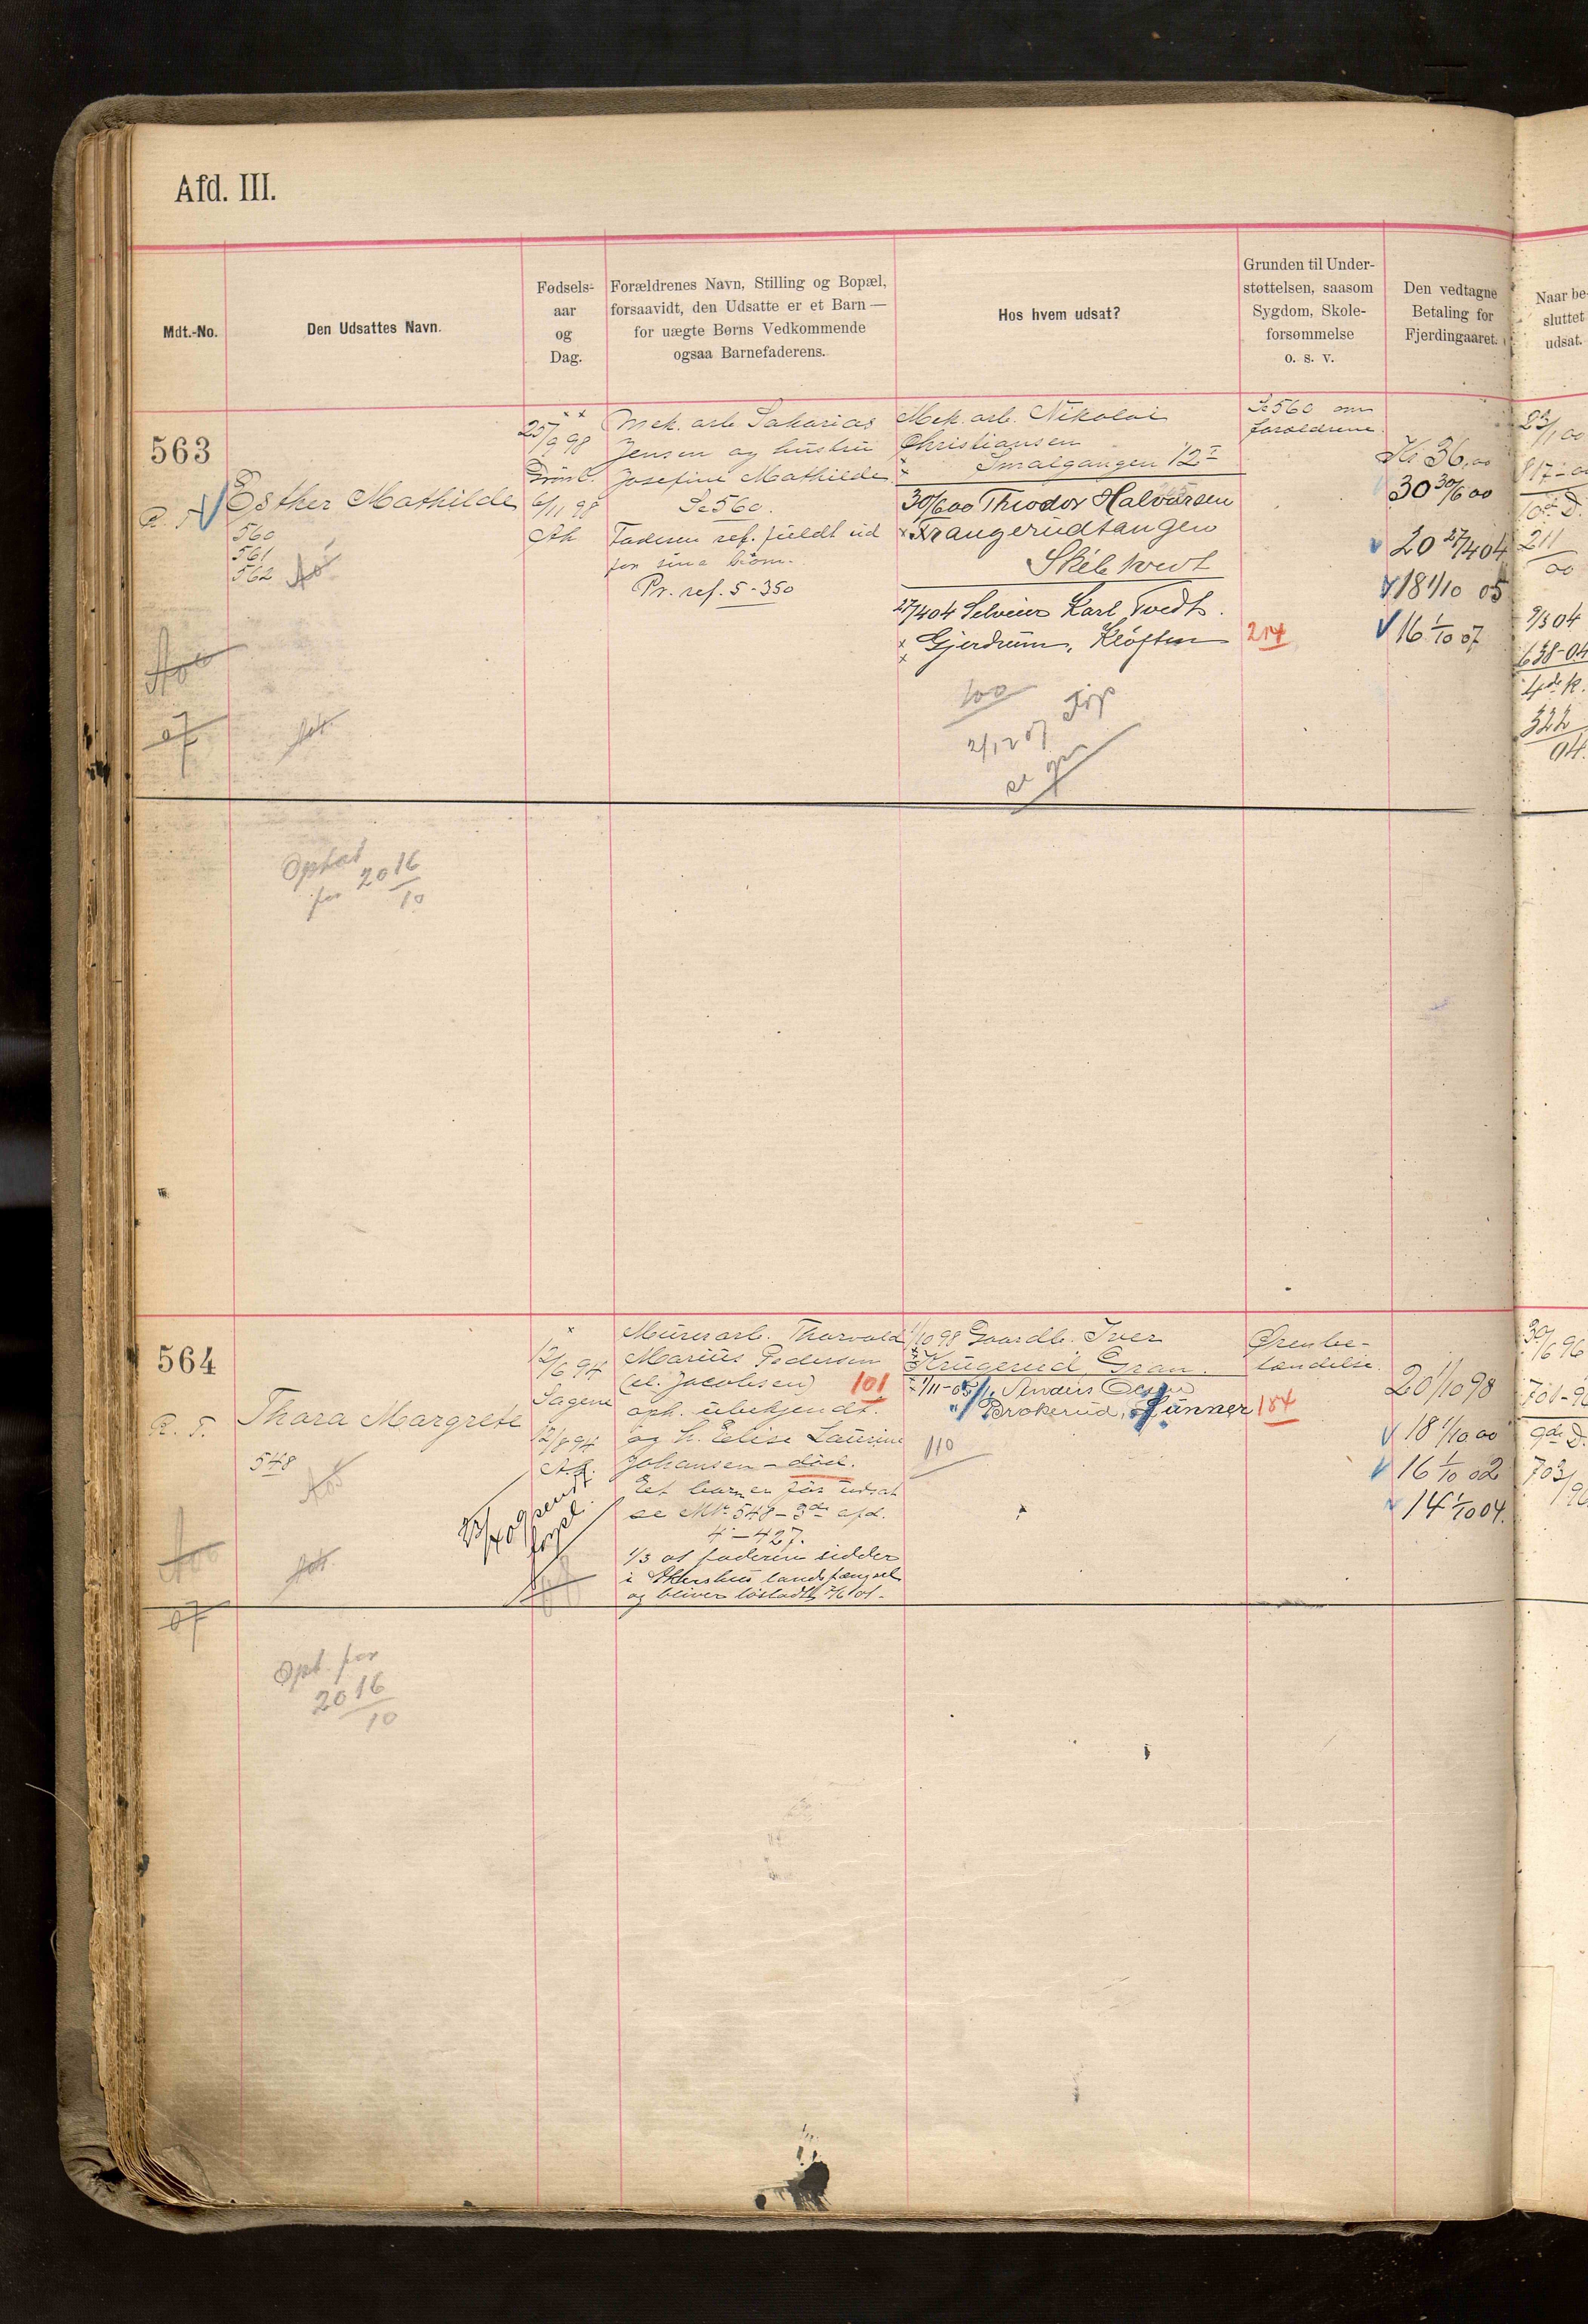 Afd. III.
Mdt.-No.
Den Udsattes Navn.
Fødsels-
aar
og
Dag.
Forældrenes Navn, Stilling og Bopæl,
forsaavidt, den Udsatte er et Barn —
for uægte Børns Vedkommende
ogsaa Barnefaderens.
Hos hvem udsat?
Grunden til Under-
støttelsen, saasom
Sygdom, Skole-
forsømmelse
o. s. v.
Den vedtagne
Betaling for
Fjerdingaaret.
Naar be-
sluttet
udsat.
563
Esther Mathilde
560
561
562
25/9 98
6/11 98
Ak
Mek. arb. Sakarias
Jensen og hustru
Josefine Mathilde
Se 560.
Faderen ref. fuldt ud
for sine börn.
Pr. ref. 5-350
Mek. arb. Nikolai
Christiansen
Smalgangen 12
30/6 00 Theodor Halvorsen
Krangerudtangen
27/4 04 Selveier Karl Tvedt.
Gjerdrum, Kløften
100
2/12 07
Se 560 om
forældrene.
214
Kr 36,00
30 30/6 00
20 27/4 04
18 1/10 05
16 1/10 07
23/1 00
817-00
10de D.
211
00
9/3 04
638-04
322
04.
07
Ophat
for 2016
10
564
R. T.
Thora Margrete
548
12/6 94
Sagene
12/8 94
Ak.
Murerarb. Thorvald
Marius Pedersen
(el. Jacobsen) 101
oph. ubekjendt.
og h. Elise Laurine
Johansen - död.
Et barn er før udsat
se Mt. 548 - 3de afd.
4-427.
1/3 01 faderen sidder
i Akershus landsfængsel
og bliver løsladt 7/6 01.
1/10 98 Gaardb. Iver
Krugerud Gran.
1/11-05 Anders Olsen
Brokerud, Lunner
184
110
Ørenbe-
tændelse.
20 1/10 98
18 1/10 00
16 1/10 02
14 1/10 04.
30/6 96
708-96
9de D.
703/
96
07
Opt. for
2016
10